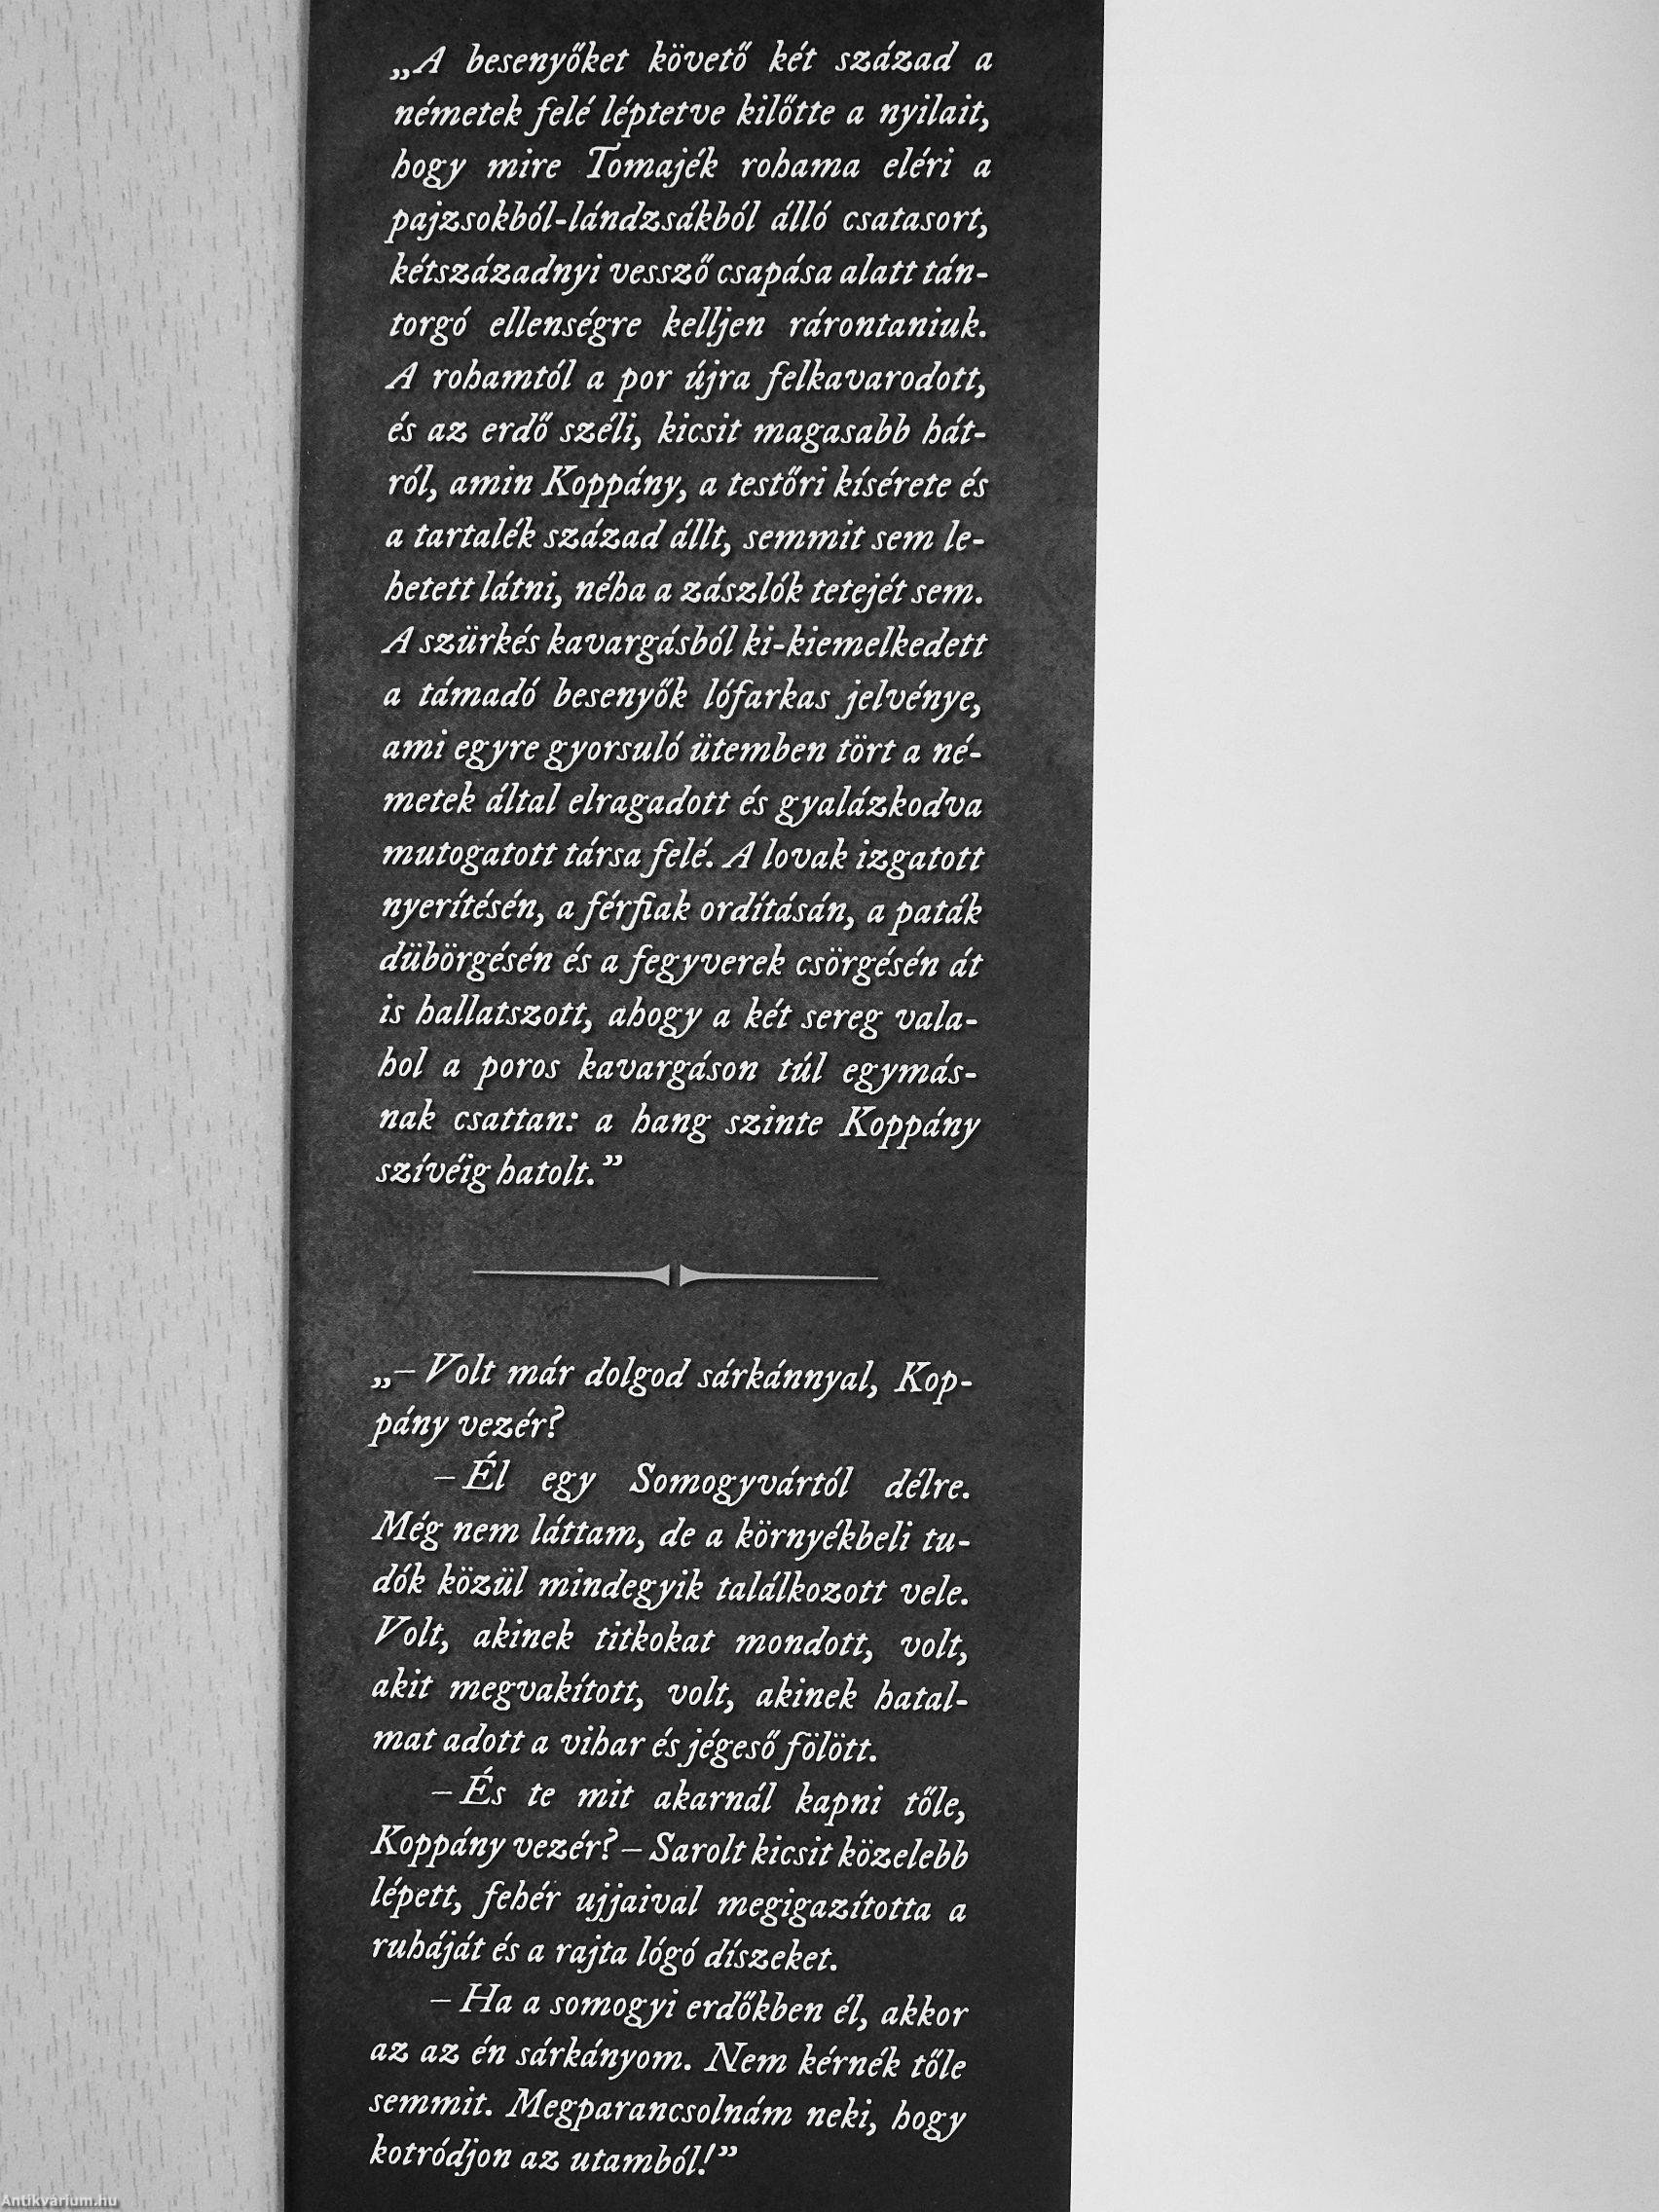 „A besenyőket követő két század a
németek felé léptetve kilőtte a nyilait,
hogy mire Tomajék rohama eléri a
pajzsokból-lándzsákból álló csatasort,
kétszázadnyi vessző csapása alatt tán-
torgó ellenségre kelljen rárontaniuk.
A rohamtól a por újra felkavarodott,
és az erdő széli, kicsit magasabb hát-
ról, amin Koppány, a testőri kísérete és
a tartalék század állt, semmit sem le-
hetett látni, néha a zászlók tetejét sem.
A szürkés kavargásból ki-kiemelkedett
a támadó besenyők lófarkas jelvénye,
ami egyre gyorsuló ütemben tört a né-
metek által elragadott és gyalázkodva
mutogatott társa felé. A lovak izgatott
nyerítésén, a férfiak ordításán, a paták
dübörgésén és a fegyverek csörgésén át
is hallatszott, ahogy a két sereg vala-
hol a poros kavargáson túl egymás-
nak csattan: a hang szinte Koppány
szívéig hatolt.”
„– Volt már dolgod sárkánnyal, Kop-
pány vezér?
– Él egy Somogyvártól délre.
Még nem láttam, de a környékbeli tu-
dók közül mindegyik találkozott vele.
Volt, akinek titkokat mondott, volt,
akit megvakított, volt, akinek hatal-
mat adott a vihar és jégeső fölött.
– És te mit akarnál kapni tőle,
Koppány vezér? – Sarolt kicsit közelebb
lépett, fehér ujjaival megigazította a
ruháját és a rajta lógó díszeket.
– Ha a somogyi erdőkben él, akkor
az az én sárkányom. Nem kérnék tőle
semmit. Megparancsolnám neki, hogy
kotródjon az utamból!”
Antikvarium.hu